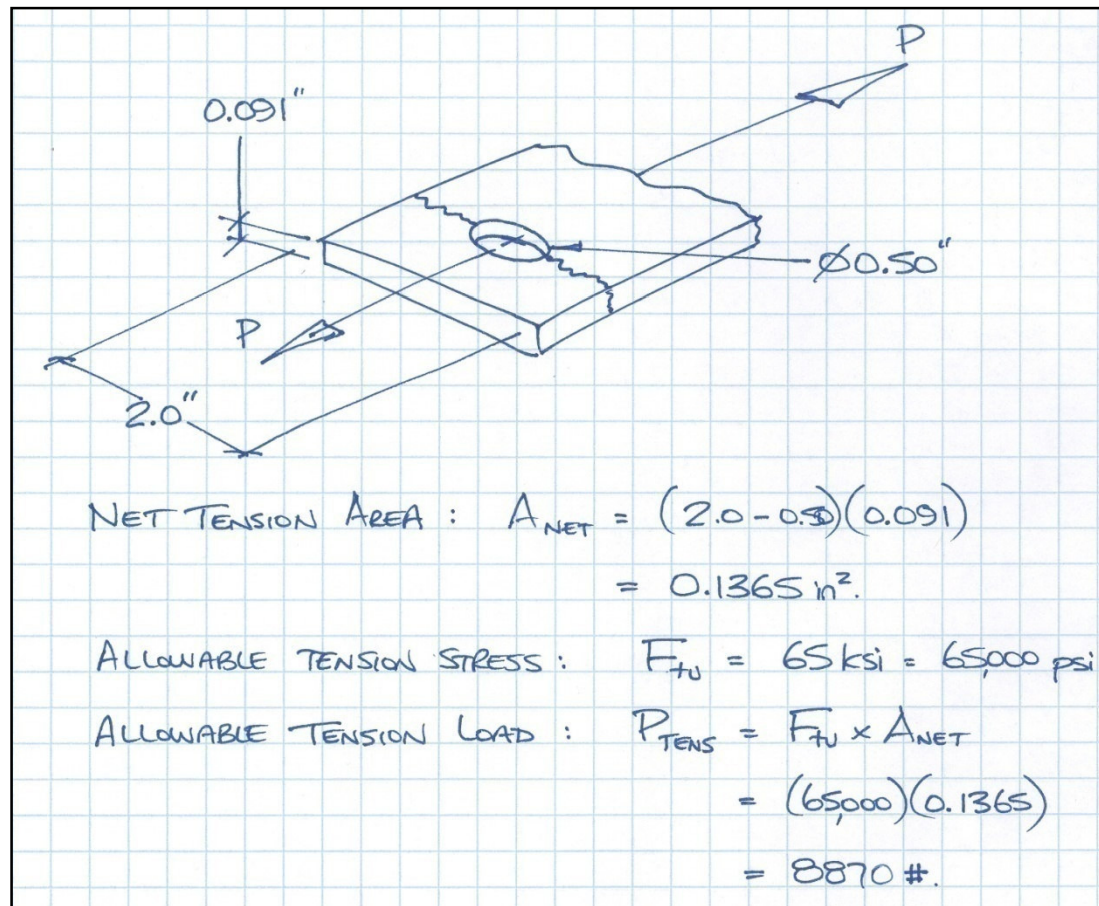 P
0.091"
Ø0.50"
P
2.0"
NET TENSION AREA : A_NET = (2.0 - 0.50)(0.091)
= 0.1365 in².
ALLOWABLE TENSION STRESS : F_tu = 65 ksi = 65,000 psi
ALLOWABLE TENSION LOAD : P_TENS = F_tu x A_NET
= (65,000)(0.1365)
= 8870 #.